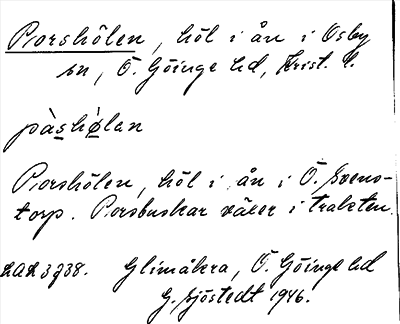 Porshölen, höl i ån i Osby
sn, Ö. Göinge hd, Krist. l.
pàs̱hø̱lan
Porshölen, höl i ån i Ö. Svens-
torp. Porsbuskar växer i trakten.
LAL 3738. Glimåkra, Ö. Göinge hd
G. Sjöstedt 1946.